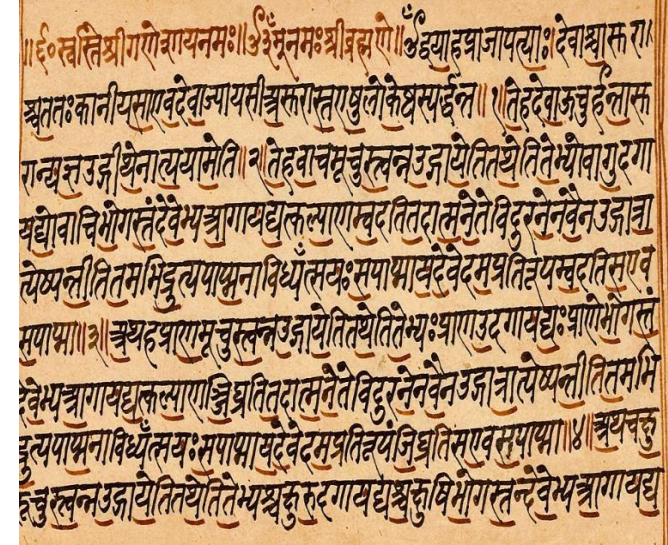 ॥६०स्वस्तिश्रीगणेशायनमः॥ॐनमःश्रीब्रह्मणे॥ॐद्वयाहप्राजापत्याः।देवाश्चासुरा
श्चततःकानीयसाएवदेवाज्यायसाअसुरास्तएषुलोकेष्वस्पर्द्धन्त॥१।तेहदेवाऊचुर्हन्तासु
रान्यज्ञउद्गीथेनात्ययामेति॥२॥तेहवाचमूचुस्त्वन्नउद्गायेतितथेतितेभ्योवागुदगा
यद्योवाचिभोगस्तंदेवेभ्यआगायद्यत्कल्याणम्वदतितदात्मनेतेविदुरनेनवैनउद्गात्रा
त्येष्यन्तीतितमभिद्रुत्यपाप्मनाविध्यँत्सयःसपाप्मायदेवेदमप्रतिरूपम्वदतिसएव
सपाप्मा॥३॥अथहप्राणमूचुस्त्वन्नउद्गायेतितथेतितेभ्यःप्राणउदगायद्यःप्राणेभोगस्तं
देवेभ्यआगायद्यत्कल्याणञ्जिघ्रतितदात्मनेतेविदुरनेनवैनउद्गात्रात्येष्यन्तीतितमभि
द्रुत्यपाप्मनाविध्यँत्सयःसपाप्मायदेवेदमप्रतिरूपंजिघ्रतिसएवसपाप्मा॥४॥अथचक्षु
रूचुस्त्वन्नउद्गायेतितथेतितेभ्यश्चक्षुरुदगायद्यश्चक्षुषिभोगस्तन्देवेभ्यआगायद्य